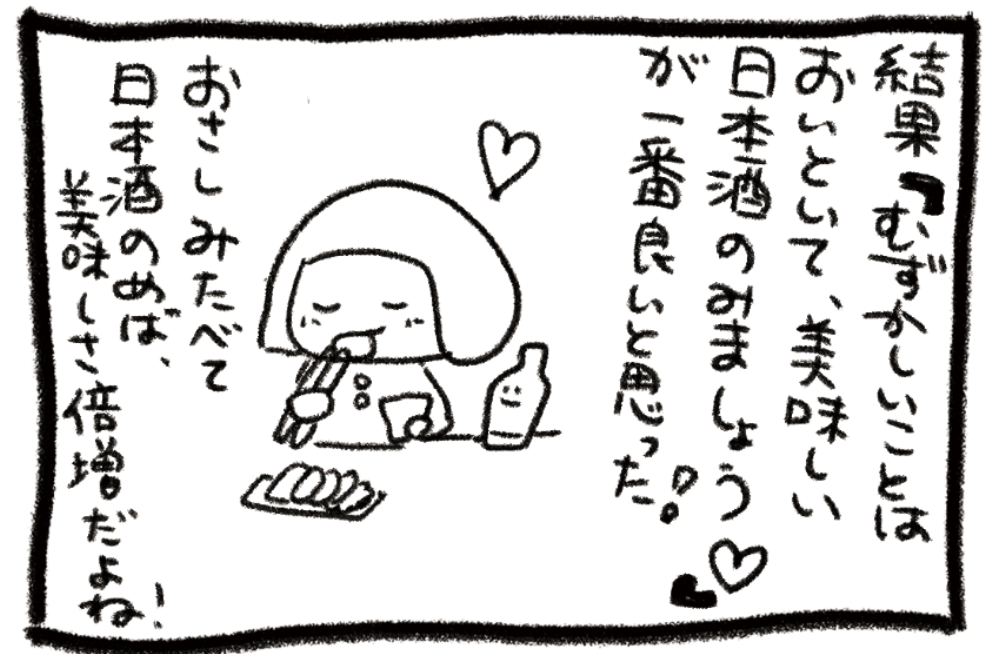 結果『むずかしいことは
おいといて、美味しい
日本酒のみましょう♡』
が一番良いと思った!
おさしみたべて
日本酒のめば、
美味しさ倍増だよね!